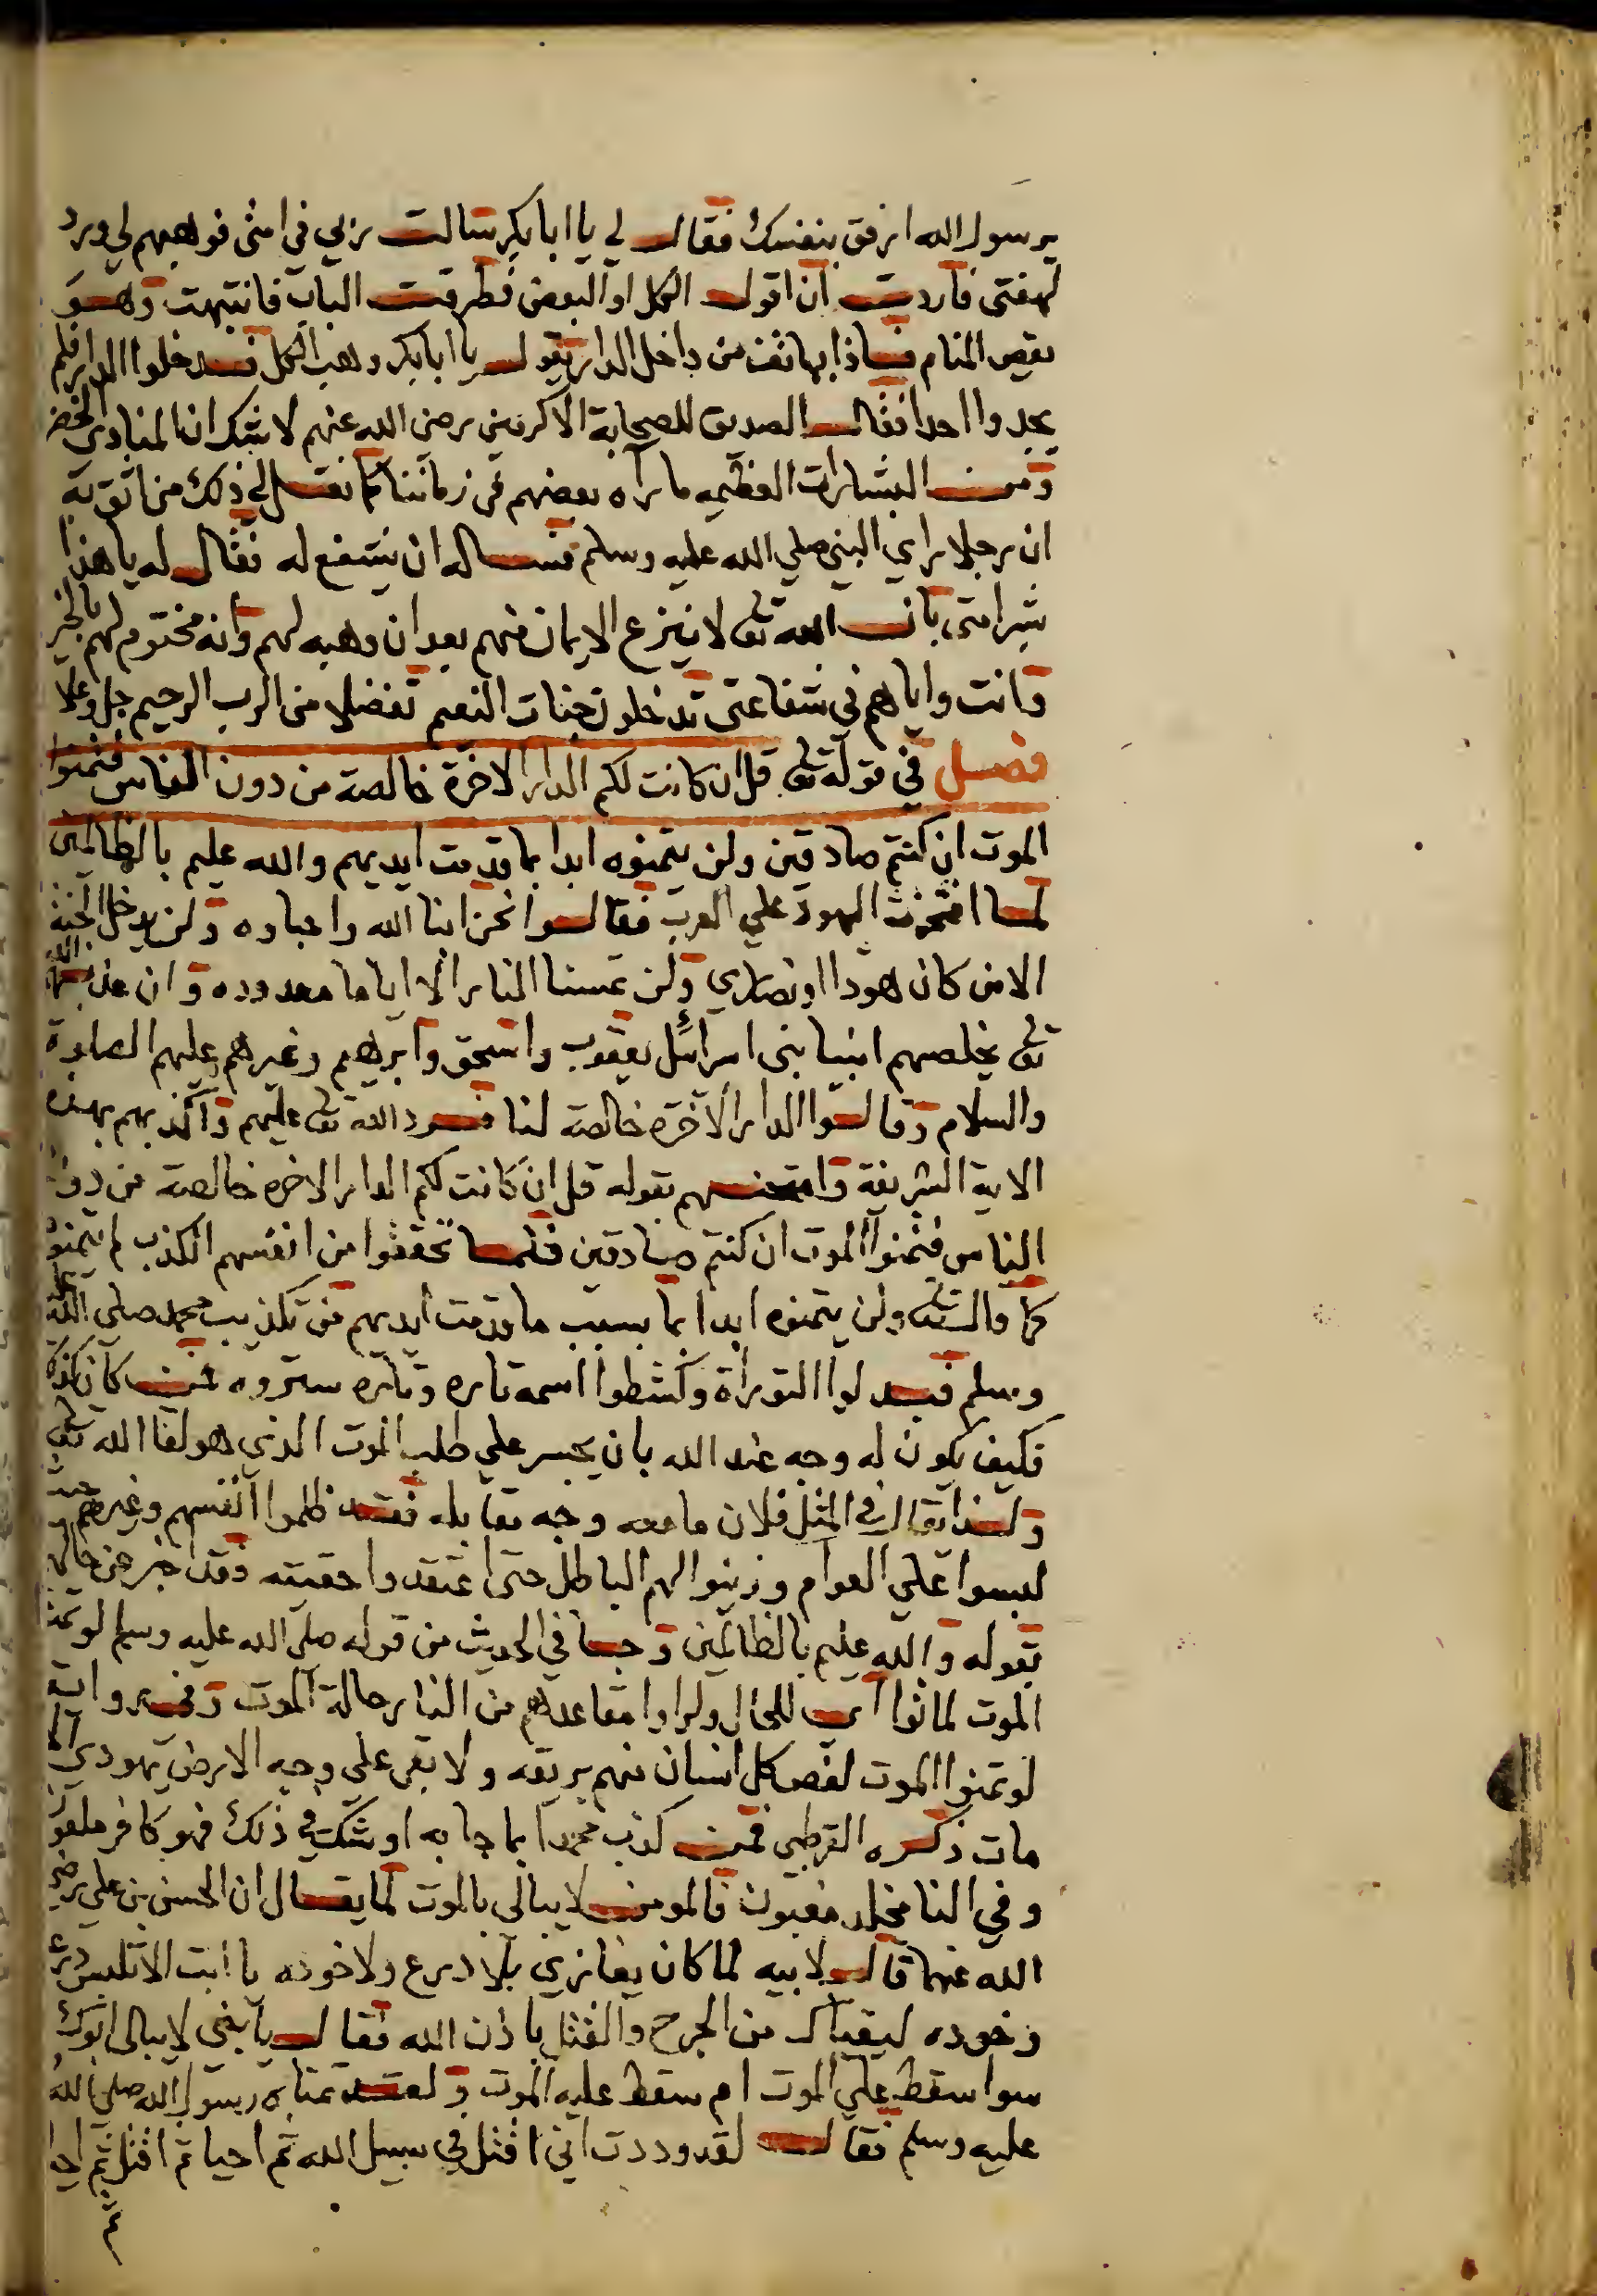 يرسول الله ارفق بنفسك فقال لي يا ابا بكر سالت ربي في امتى فوهبهم لي وبرد
لهفتى فاردت ان اقول الكل او البعض فطرقت الباب فانتبهت وهو
يقص المنام فاذا بهاتف من داخل الدار يقول يا ابا بكر وهب الكل فدخلوا الدار فلم
يجدوا احدا فقال الصديق للصحابة الاكرمين رضى الله عنهم لا شك ان المنادى الخضر
ومن البشارات العظيمه ما رآه بعضهم في زماننا كما نقل لي ذلك من اثق به
ان رجلا راي النبي صلي الله عليه وسلم فساله ان يشفع له فقال له يا هذا
بشر امتى بان الله تعى لا ينزع الايمان منهم بعد ان وهبه لهم وانه مختوم لهم بالخير
وانت واياهم في شفاعتى تدخلون جنات النعيم تفضلا من الرب الرحيم جل وعلا
فصل في قوله تعى قل ان كانت لكم الدار الاخرة خالصة من دون الناس فتمنوا
الموت ان كنتم صادقين ولن يتمنوه ابدا بما قدمت ايديهم والله عليم بالظالمين
لما افتخرت اليهود علي العرب فقالوا نحن ابنا الله واحباوه ولن يدخل الجنة
الا من كان هودا او نصاري ولن تمسنا النار الا اياما معدوده وان عذبهم الله
تعى يخلصهم انبيا بنى اسرائل يعقوب واسحق وابرهيم وغيرهم عليهم الصلوة
والسلام وقالوا الدار الاخرة خالصة لنا فرد الله تعى عليهم واكذبهم بهذه
الاية الشريفة وامتحنهم بقوله قل ان كانت لكم الدار الاخره خالصة من دون
الناس فتمنوا الموت ان كنتم صادقين فلما تحققوا من انفسهم الكذب لم يتمنوه
كما قال تعى ولن يتمنوه ابدا بما بسبب ما قدمت ايديهم من تكذيب محمد صلى الله عليه
وسلم فبدلوا التوراة وكشطوا اسمه تاره وتاره ستروه فمن كان كذلك
فكيف يكون له وجه عند الله بان يجسر علي طلب الموت الذي هو لقا الله تعى
ولهذا يقال في المثل فلان ما معه وجه يقابله فقد ظلموا انفسهم وغيرهم حيث
لبسوا علي العوام وزينوا لهم الباطل حتى اعتقدوا حقيته وقد اخبر عن حالهم
بقوله والله عليم بالظالمين وجا في الحديث من قوله صلى الله عليه وسلم لو تمنوا
الموت لماتوا اي للحال ولراوا مقاعدهم من النار حالة الموت وفي رواية
لو تمنوا الموت لغص كل انسان منهم بريقه ولا بقى على وجه الارض يهودي الا
مات ذكره القرطبي فمن كذب محمدا بما جا به او شك في ذلك فهو كافر ملعون
وفي النار مخلد مغبون فالمومن لا يبالى بالموت كما يقال ان الحسن بن علي رضى
الله عنهما قال لابيه لما كان يغازي بلا درع ولا خوذه يا ابت الا تلبس درع
وخوده ليقياك من الجرح والقتل باذن الله فقال يا بنى لا يبالى ابوك
سوا سقط علي الموت ام سقط عليه الموت ولقد تمناه رسول الله صلى الله
عليه وسلم فقال لقد وددت اني اقتل في سبيل الله ثم احيا ثم اقتل ثم احيا
ثم